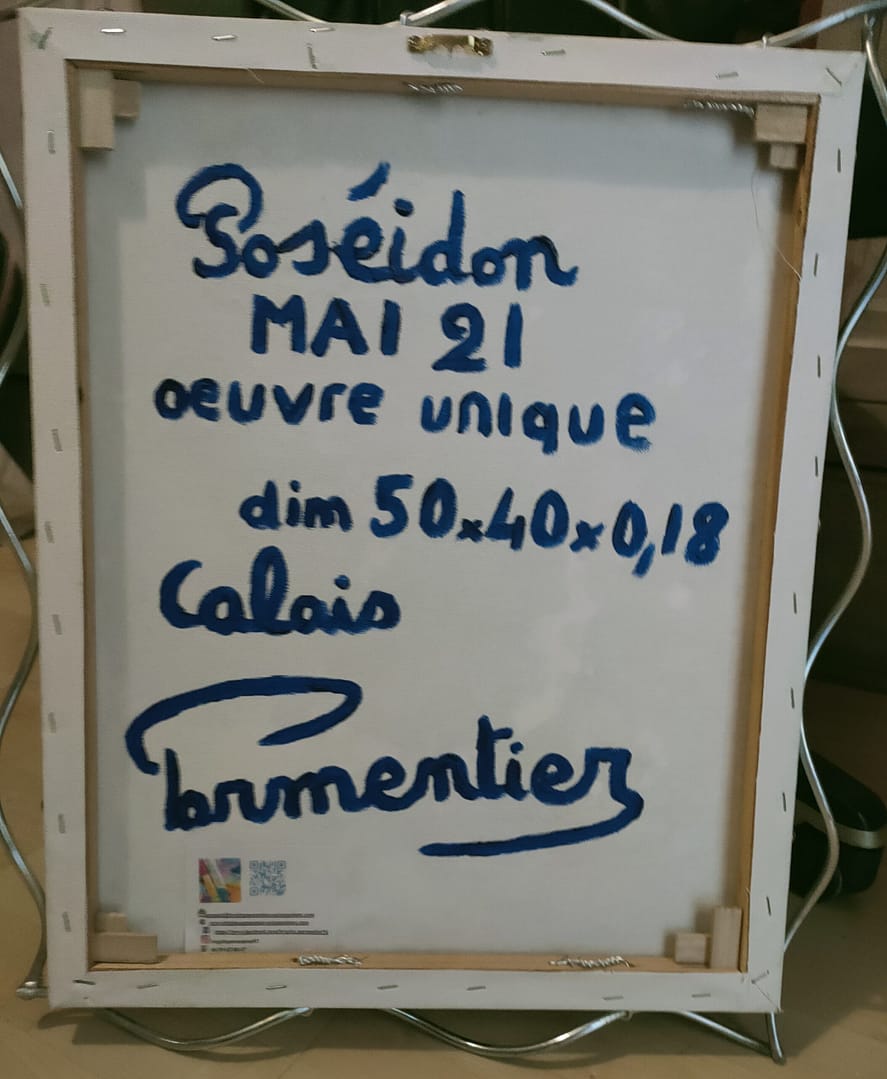 Poséidon
MAI 21
oeuvre unique
dim 50x40x0,18
Calais
Parmentier